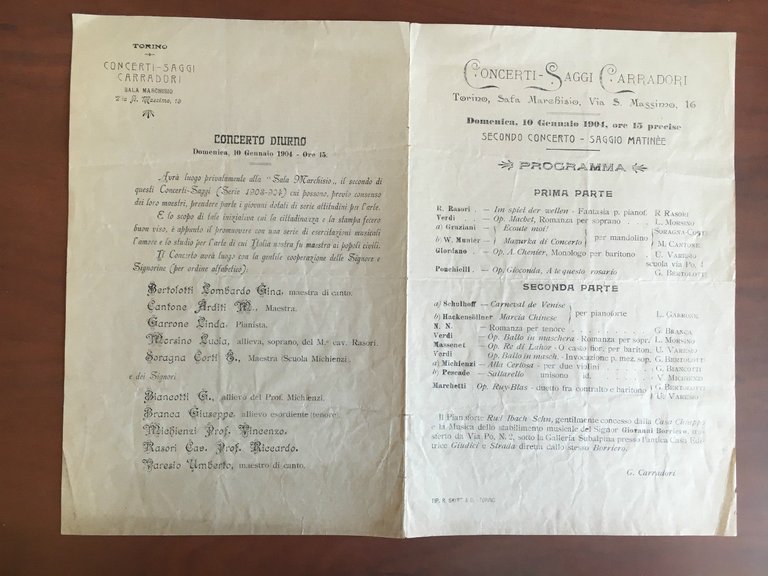 TORINO
CONCERTI-SAGGI
CARRADORI
SALA MARCHISIO
Via S. Massimo, 16
CONCERTO DIURNO
Domenica, 10 Gennaio 1904 - Ore 15.
Avrà luogo privatamente alla "Sala Marchisio", il secondo di
questi Concerti-Saggi (Serie 1903-904) cui possono, previo consenso
dei loro maestri, prendere parte i giovani dotati di serie attitudini per l'arte.
È lo scopo di tale iniziativa cui la cittadinanza e la stampa fecero
buon viso, è appunto il promuovere con una serie di esercitazioni musicali
l'amore e lo studio per l'arte di cui Italia nostra fu maestra ai popoli civili.
Il Concerto avrà luogo con la gentile cooperazione delle Signore e
Signorine (per ordine alfabetico):
Bertolotti Lombardo Gina, maestra di canto.
Cantone Arditi M., Maestra.
Garrone Linda, Pianista.
Morsino Lucia, allieva, soprano, del M.° cav. Rasori.
Soragna Corti G., Maestra (Scuola Michienzi).
e dei Signori
Biancotti G., allievo del Prof. Michienzi.
Branca Giuseppe, allievo esordiente (tenore).
Michienzi Prof. Vincenzo.
Rasori Cav. Prof. Riccardo.
Varesio Umberto, maestro di canto.
CONCERTI-SAGGI CARRADORI
Torino, Sala Marchisio, Via S. Massimo, 16
Domenica, 10 Gennaio 1904, ore 15 precise
SECONDO CONCERTO - SAGGIO MATINÈE
PROGRAMMA
PRIMA PARTE
R. Rasori . — Im spiel der wellen - Fantasia p. pianof. R RASORI
Verdi . . — Op. Macbet, Romanza per soprano . L. MORSINO
a) Graziani — Ecoute moi! SORAGNA-CORTI
b) W. Munier — Mazurka di Concerto per mandolino M. CANTONE
Giordano . — Op. A. Chenier, Monologo per baritono U. VARESIO
scuola via Po, 4
Ponchielli . — Op. Gioconda, A te questo rosario G. BERTOLOTTI
SECONDA PARTE
a) Schulhoff — Carneval de Venise
b) Hackensöllner Marcia Chinese per pianoforte L. GARRONE
N. N. — Romanza per tenore G. BRANCA
Verdi — Op. Ballo in maschera - Romanza per sopr. L. MORSINO
Massenet — Op. Re di Lahor - O casto fior, per bariton. U. VARESIO
Verdi Op. Ballo in masch. - Invocazione p. mez. sop. G. BERTOLOTTI
a) Michienzi — Alla Certosa - per due violini G. BIANCOTTI
b) Pescade — Saltarello unisono id. V. MICHIENZI
Marchetti Op. Ruy-Blas - duetto fra contralto e baritono G. BERTOLOTTI
U. VARESIO
Il Pianoforte Rud Ibach Sohn, gentilmente concesso dalla Casa Chiappo
e la Musica dello stabilimento musicale del Signor Giovanni Borriero,
sterto da Via Po, N. 2, sotto la Galleria Subalpina presso l'antica Casa Edi-
trice Giudici e Strada diretta dallo stesso Borriero.
G. Carradori
TORINO